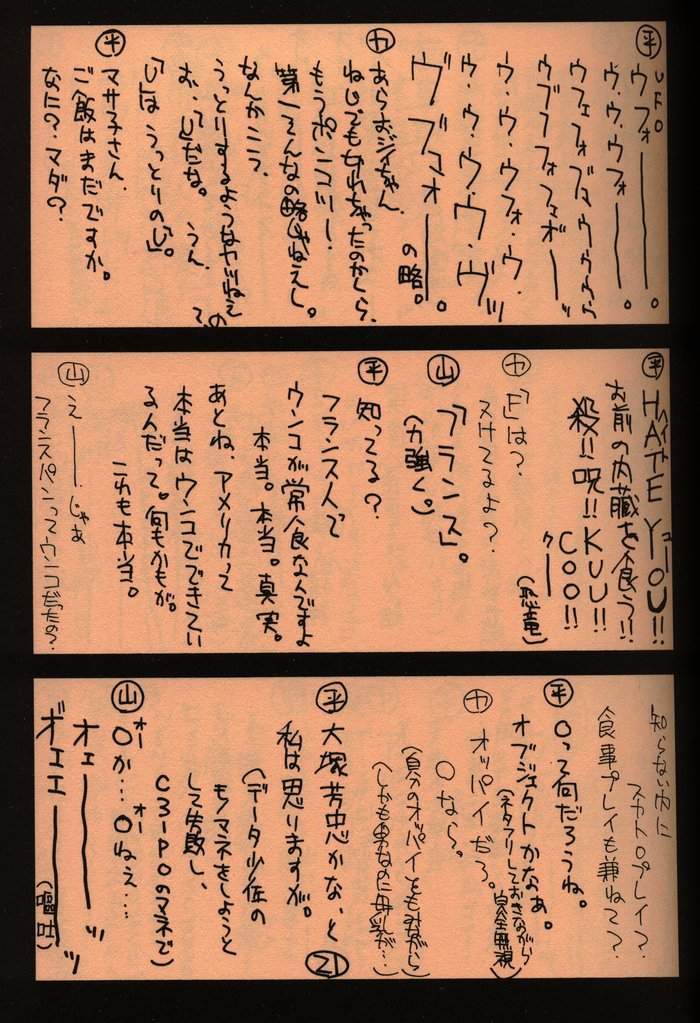 平
UFO
ウフォ―――。
ウ・ウ・ウフォ―――。
ウフェフォブマウウウウ
ウブフフォフェボ――ッ
ウ・ウ・ウフォ・ウ・
ウ・ウ・ウ・ウ・ヴッ
ヴ・ブフォ―――。
の略。
カ
あらおジイちゃん、
ねじでもなれちゃったのかしら、
もうポンコツー!
第一そんなの略じゃねえし。
なんかこう、
うっとりするようなヤツねぇの
お、って「U」だな。うん。て、
「U」は うっとりの「U」。
平
マサ子さん、
ご飯はまだですか。
なに?マダ?
平
HATE YOU!!
ヘイト ユー
お前の内臓を食う!!
殺!!呪!!KUU!!
COO!!
クー
(恐竜)
カ
「F」は?
ヌけてるよ?
山
「フランス」。
(力強く。)
平
知ってる?
フランス人で
ウンコが常食なんですよ
本当。本当。真実。
あとね、アメリカって
本当はウンコでできてい
るんだって。何もかもが。
これも本当。
山
え――、じゃあ
フランスパンってウンコだったの?
知らない内に
スカトロプレイ?
食事プレイも兼ねて?
平
Oって何だろうね。
オブジェクトかなぁ。
(ネタフリしておきながら
完全無視)
カ
オッパイだろ。
Oなら。
(自分のオッパイをもみながら)
平
大塚芳忠かな、と
私は思いますが。
(データ少佐の
モノマネをしようと
して失敗し、
C3-POのマネで)
山
Oか…Oねぇ…
オー オー
オェ―――ッ
ギェエ―――ッ
(嘔吐)
21